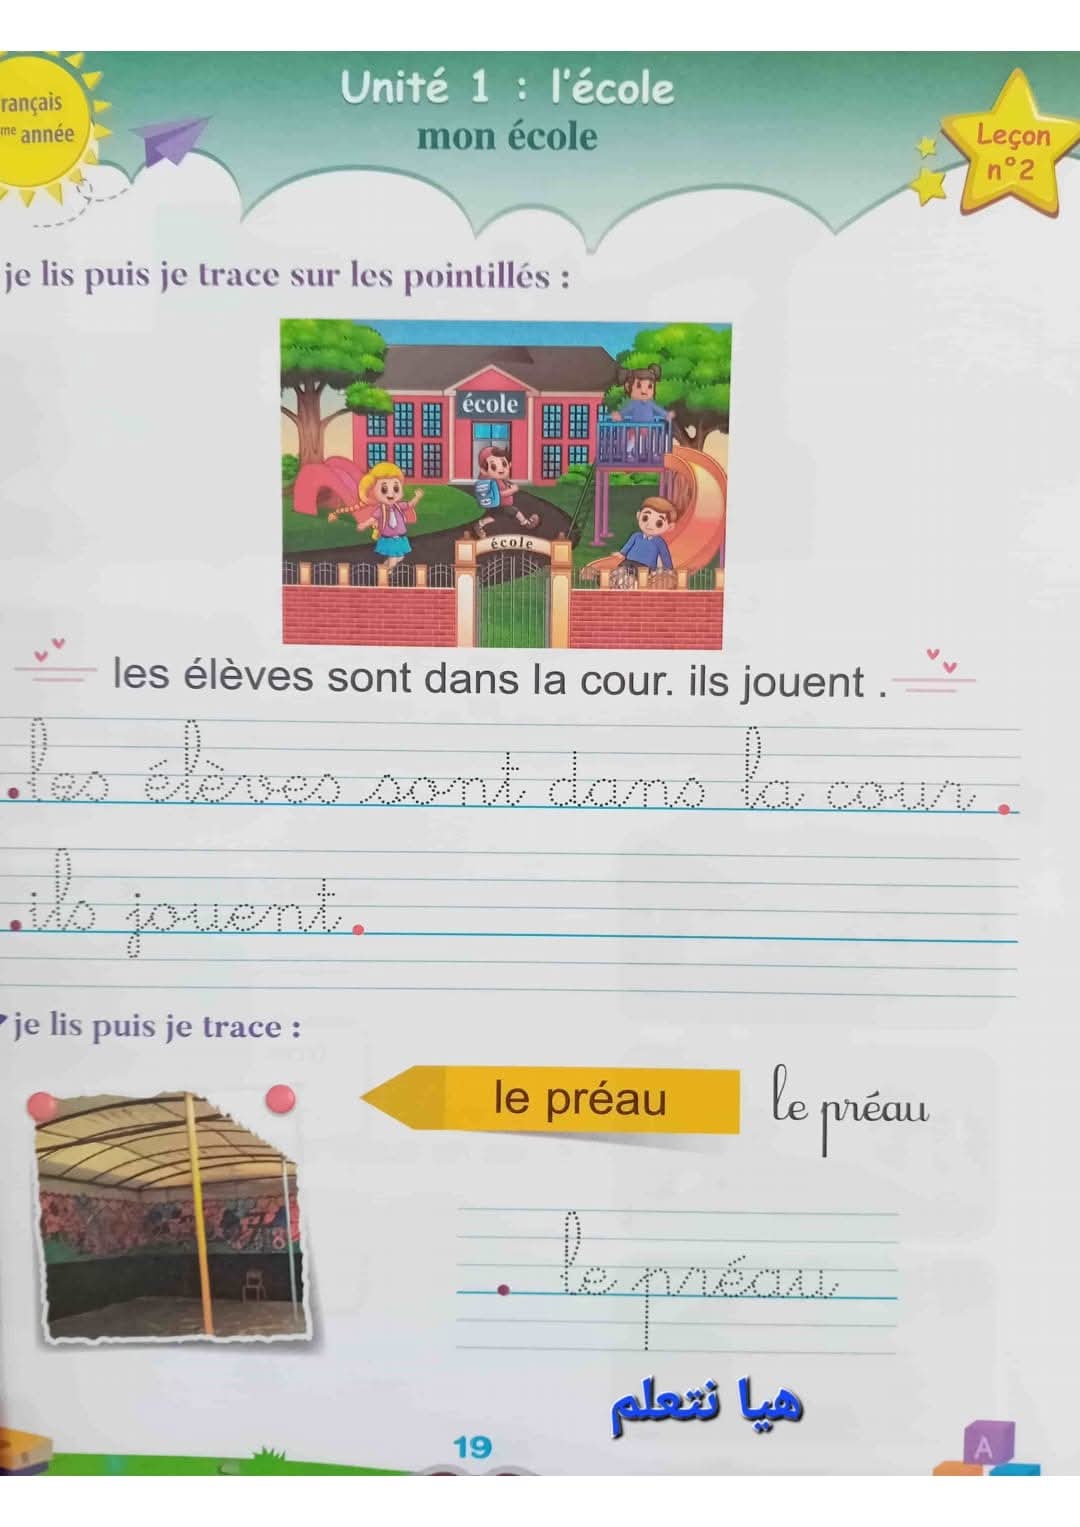 Unité 1 : l'école
mon école
rançais
me année
Leçon
n°2
je lis puis je trace sur les pointillés :
école
école
les élèves sont dans la cour. ils jouent .
les élèves sont dans la cour.
ils jouent.
je lis puis je trace :
le préau
le préau
le préau
هيا نتعلم
19
A